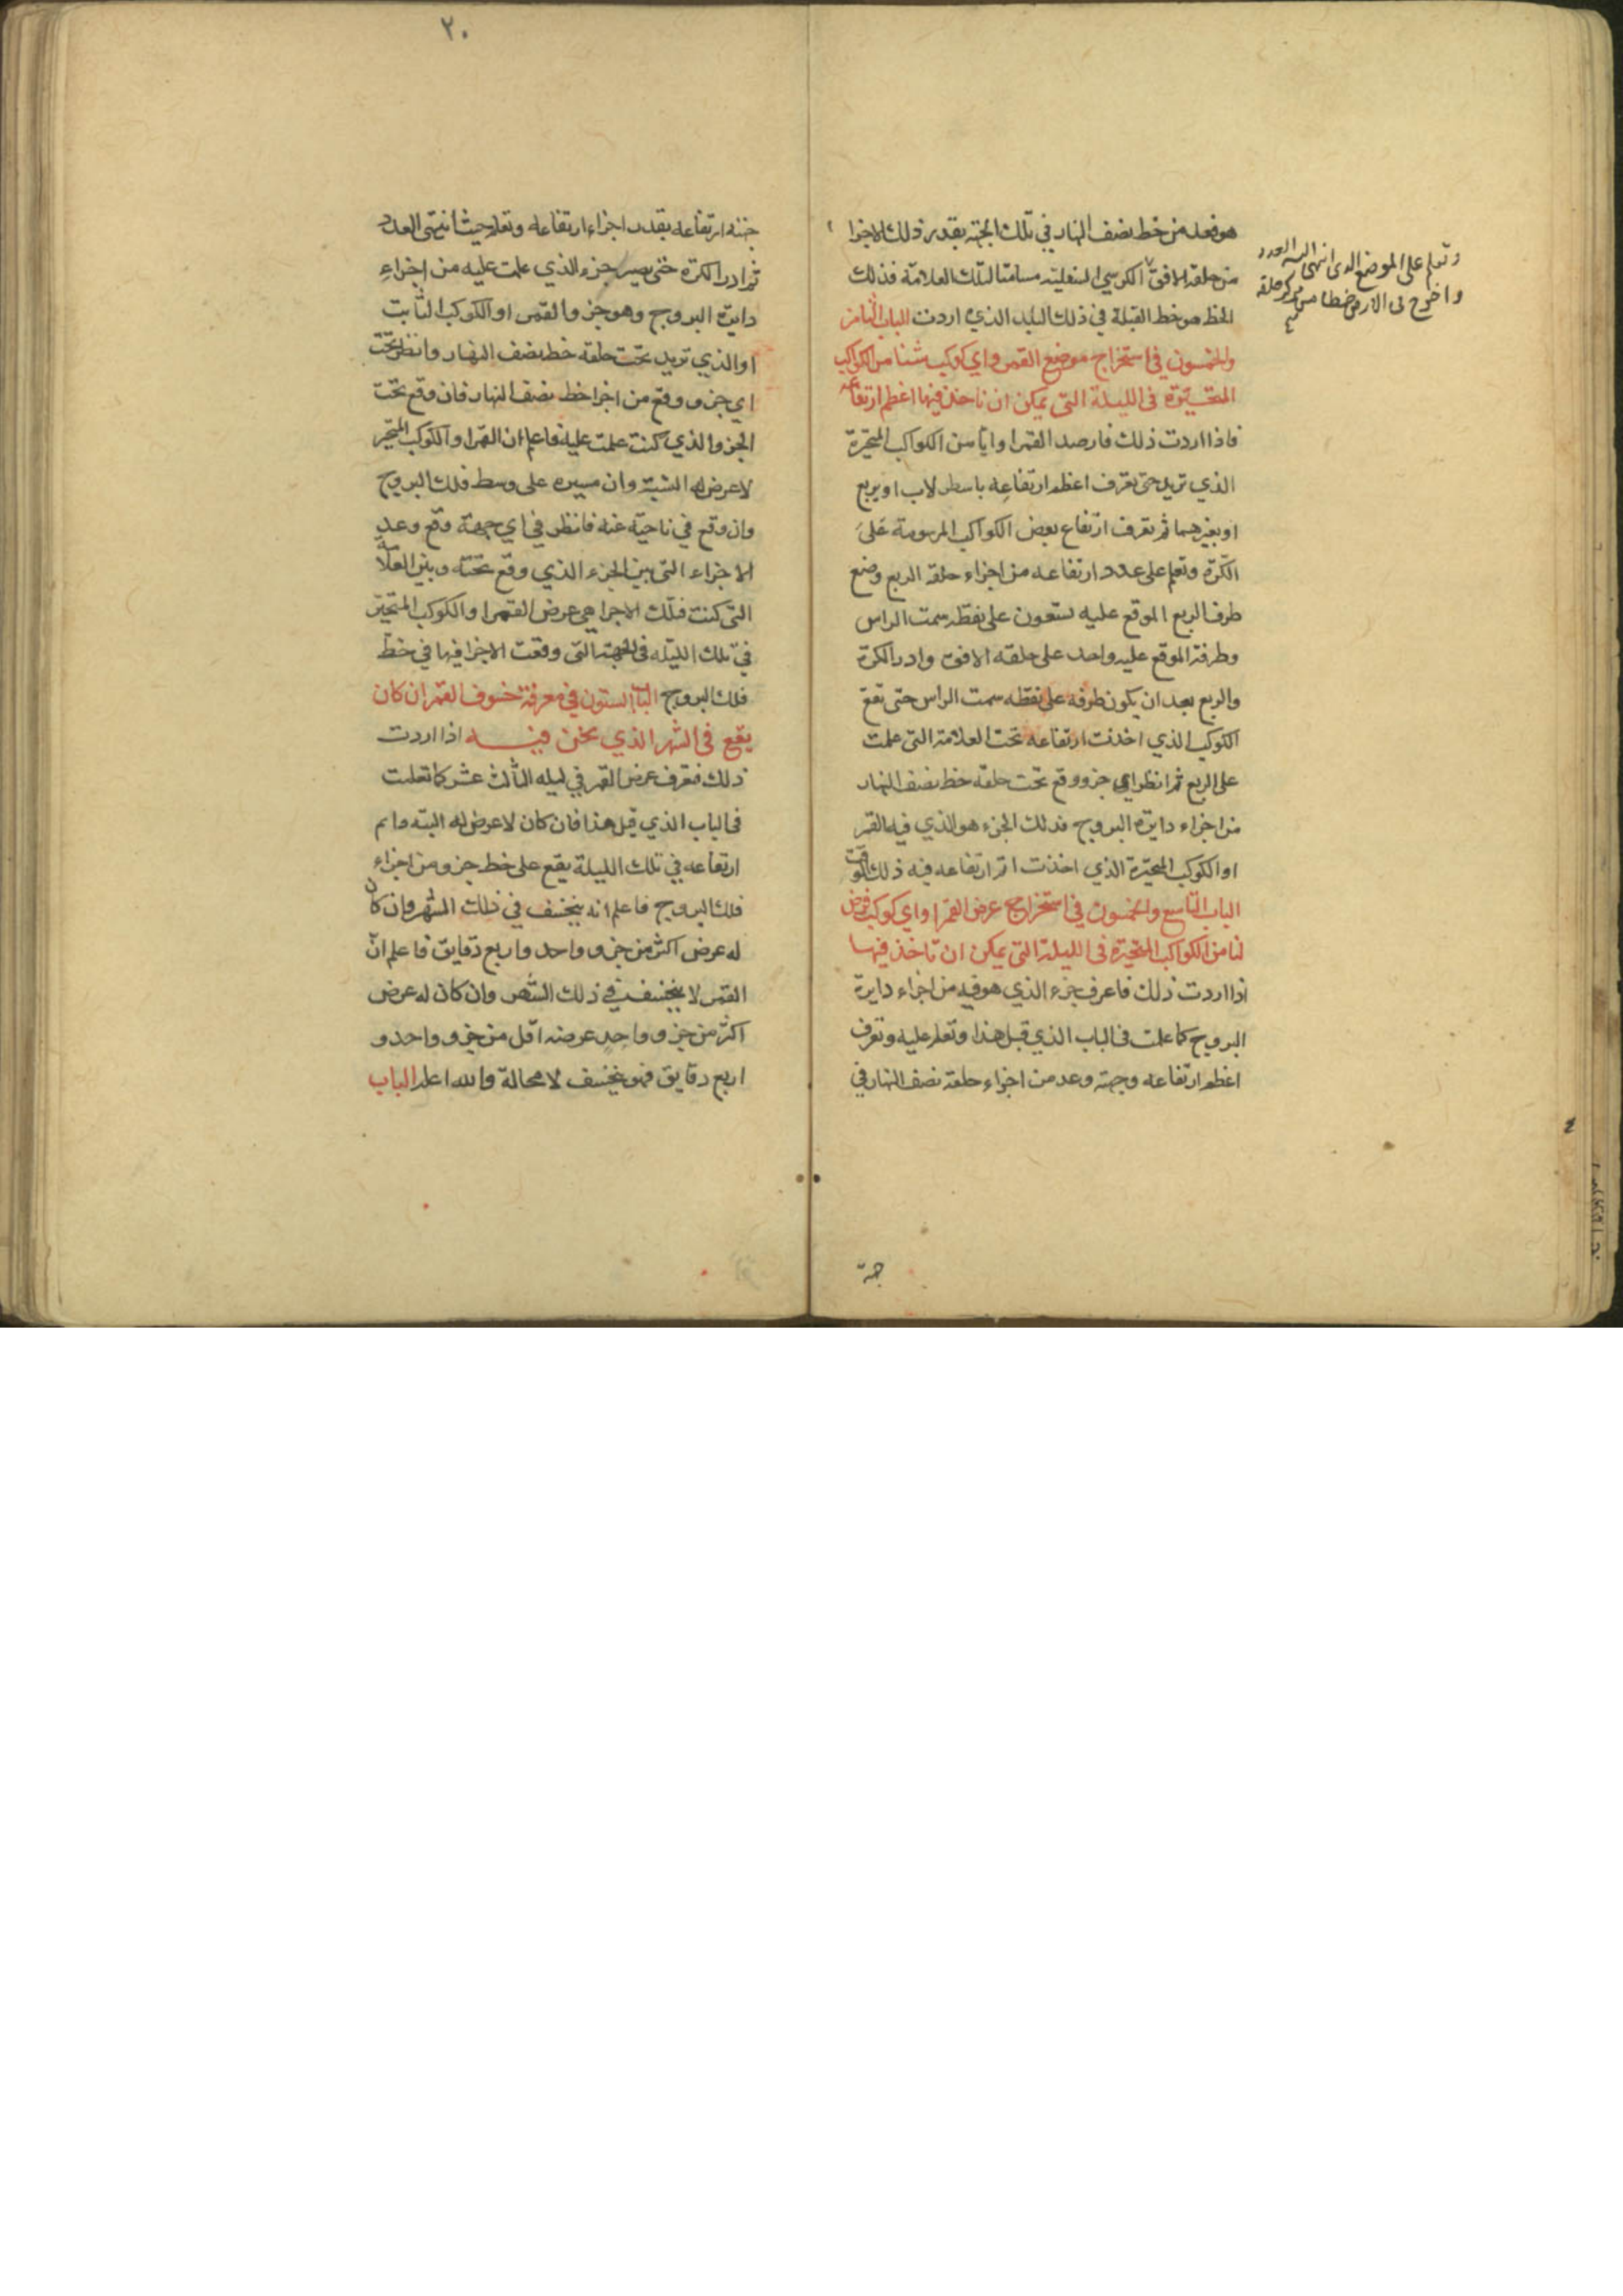 هو فعد من خط نصف النهار في تلك الجهة بقدر ذلك الاجزا
من حلقة الافق الكرسي السفلية مسامتا لتلك العلامة فذلك
الخط هو خط القبلة في ذلك البلد الذي اردت الباب الثامن
والخمسون في استخراج موضع القمر واي كوكب شئنا من الكواكب
المتحيرة في الليلة التي يمكن ان ناخذ فيها اعظم ارتفاعه
فاذا اردت ذلك فارصد القمر او ايا من الكواكب المتحيرة
الذي تريد حتى تعرف اعظم ارتفاعه باسطرلاب او بربع
او بغيرهما ثم تعرف ارتفاع بعض الكواكب المرسومة على
الكرة وتعلم على عدد ارتفاعه من اجزاء حلقة الربع وضع
طرف الربع الموقع عليه تسعون على نقطة سمت الراس
وطرفه الموقع عليه واحد على حلقة الافق وادر الكرة
والربع بعد ان يكون طرفه على نقطه سمت الراس حتى تقع
الكوكب الذي اخذت ارتفاعه تحت العلامة التي علمت
على الربع ثم انظر اي جزو وقع تحت حلقة خط نصف النهار
من اجزاء دايرة البروج فذلك الجزء هو الذي فيه القمر
او الكوكب المتحيرة الذي اخذت ارتفاعه فيه ذلك الوقت
الباب التاسع والخمسون في استخراج عرض القمر او اي كوكب فرض
لنا من الكواكب المتحيرة في الليلة التي يمكن ان تاخذ فيها
اذا اردت ذلك فاعرف جزء الذي هو فيه من اجزاء دايرة
البروج كما علمت في الباب الذي قبل هذا وتعلم عليه وتعرف
اعظم ارتفاعه وجهته وعد من اجزاء حلقة نصف النهار في
جهة
وتعلم على الموضع الذي انتهى اليه العدد
واخرج في الارض خطا من مركز حلقة
٢٠
جهة ارتفاعه بقدر اجزاء ارتفاعه وتعلم حيث انتهى العدد
ثم ادر الكرة حتى يصير جزء الذي علمت عليه من اجزاء
دايرة البروج وهو جزو القمر او الكوكب الثابت
او الذي تريد تحت حلقة خط نصف النهار وانظر تحت
اي جزو وقع من اجزا خط نصف النهار فان وقع تحت
الجزو الذي كنت علمت عليه فاعلم ان القمر او الكوكب المتحير
لا عرض له البتة وان مسيره على وسط فلك البروج
وان وقع في ناحية عنه فانظر في اي جهة وقع وعد
الاجزاء التي بين الجزء الذي وقع تحته وبين العلامة
التي كنت فتلك الاجزا هي عرض القمر او الكوكب المتحير
في تلك الليلة في الجهة التي وقعت الاجزا فيها في خط
فلك البروج الباب الستون في معرفة خسوف القمر ان كان
يقع في الشهر الذي نحن فيه اذا اردت
ذلك فتعرف عرض القمر في ليله الثالث عشر كما تعلمت
في الباب الذي قبل هذا فان كان لا عرض له البتة وا
ارتفاعه في تلك الليلة يقع على خط جزو من اجزاء
فلك البروج فاعلم انه ينخسف في ذلك الشهر وان كان
له عرض اكثر من جزو واحد واربع دقايق فاعلم ان
القمر لا ينخسف في ذلك الشهر وان كان له عرض
اكثر من جزو واحد عرضه اقل من جزو واحد و
اربع دقايق فهو ينخسف لا محالة والله اعلم الباب